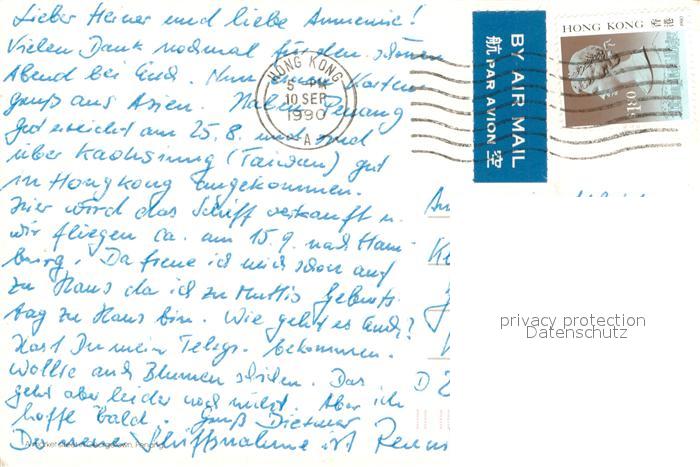 Lieber Heiner und liebe Annemie!
Vielen Dank nochmal für den schönen
Abend bei Euch. Nun einen Karten
gruß aus Asien. Haben Penang
gut erreicht am 25.8. und sind
über Kaohsiung (Taiwan) gut
in Hongkong angekommen.
Hier wird das Schiff verkauft u.
wir fliegen ca. am 15.9. nach Ham-
burg. Da freue ich mich schon auf
zu Haus da ich zu Muttis Geburts-
tag zu Haus bin. Wie geht es Euch?
Hast Du mein Telegr. bekommen.
Wollte auch Blumen schicken. Das
geht aber leider noch nicht. Aber ich
hoffe bald. Gruß Dietmar
Der neue Schiffsname ist
HONG KONG
5 PM
10 SEP
1990
A
BY AIR MAIL
PAR AVION
航空
HONG KONG 香港
1990
$1.80
D 2
privacy protection
Datenschutz